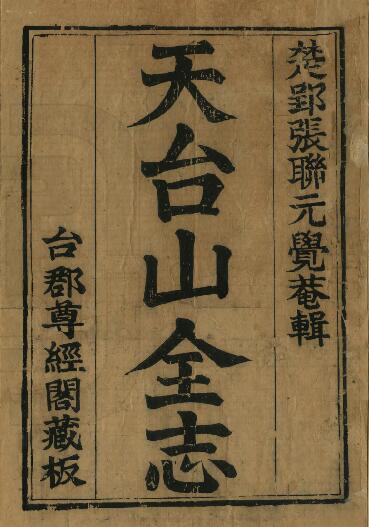 楚郢張聯元覺菴輯
天台山全志
台郡尊經閣藏板